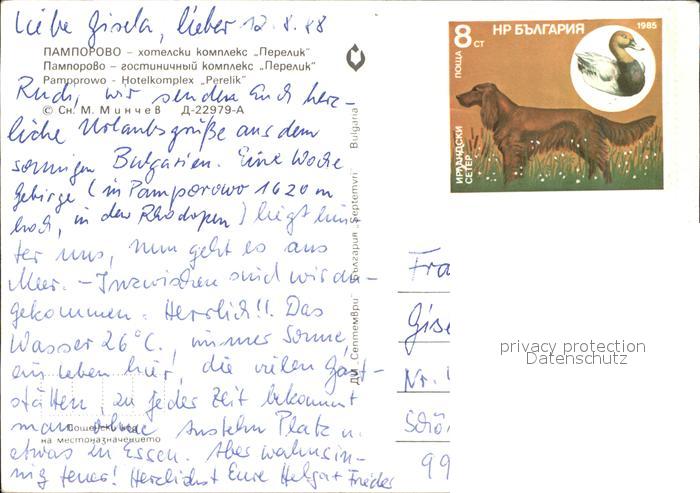 Liebe Gisela, lieber 12.8.88
ПАМПОРОВО – хотелски комплекс „Перелик"
Пампорово – гостиничный комплекс „Перелик"
Pamporowo - Hotelkomplex "Perelik"
© Сн. М. Минчев Д-22979-А
Rudi, wir senden Euch herz-
liche Urlaubsgrüße aus dem
sonnigen Bulgarien. Eine Woche
Gebirge (in Pamporowo 1620 m
hoch, in den Rhodopen) liegt hin-
ter uns, nun geht es ans
Meer. – Inzwischen sind wir an-
gekommen. Herrlich!! Das
Wasser 26°C, immer Sonne,
ein Leben hier, die vielen Gast-
stätten, zu jeder Zeit bekommt
man ohne Anstehn Platz u.
etwas zu Essen. Aber wahnsin-
nig teuer! Herzlichst Eure Helga + Frieder
на местоназначението
ДИ „Септември" България „Septemvri" Bulgaria
НР БЪЛГАРИЯ 1985
ПОЩА 8 СТ
ИРЛАНДСКИ СЕТЕР
Fra
Gise
Nr.
Schö
99
privacy protection
Datenschutz